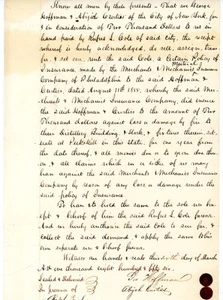 Know all men by these presents, That we George
Hoffman & Abijah Curtiss of the City of New York, for
& in consideration of Five Thousand Dollars to us in
hand paid by Rufus L Cole of said city, the receipt
whereof is hereby acknowledged, do sell, assign, tran-
fer & set over, unto the said Cole a Certain Policy of
Insurance made by the Merchants & Mechanics Insurance
Company of Philadelphia to the said Hoffman &
Curtiss, dated August 11th 185, whereby the said Mer-
chants & Mechanics Insurance Company, did insure
the said Hoffman & Curtiss to the amount of Five
Thousand dollars against loss or damage by fire
to their Distillery Building, Stock, & fixtures therein, sit-
uate at Peekskill in this State, for one year from
the date thereof, and we do assign
& all claims which in or either of us may
have against the said Merchants & Mechanics Insurance
Company by reason of any loss or damage under the
said policy of Insurance
To have & to hold the same to the sole use ben-
efit & behoof of him the said Rufus L Cole forever.
And we hereby authorize the said Cole to sue for &
collect the said demand & apply the same to his
own separate use & behoof forever.
Witness our hands & seals this day of March
A.D. one thousand eight hundred & fifty six.
Sealed & Delivered Geo Hoffman
in presence of Abijah Curtiss